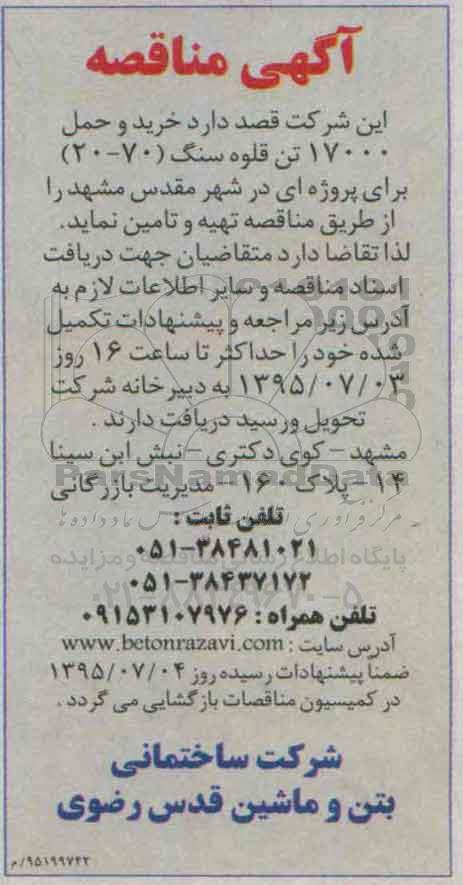 آگهی مناقصه
این شرکت قصد دارد خرید و حمل
۱۷۰۰۰ تن قلوه سنگ (۷۰-۲۰)
برای پروژه ای در شهر مقدس مشهد را
از طریق مناقصه تهیه و تامین نماید.
لذا تقاضا دارد متقاضیان جهت دریافت
اسناد مناقصه و سایر اطلاعات لازم به
آدرس زیر مراجعه و پیشنهادات تکمیل
شده خود را حداکثر تا ساعت ۱۶ روز
۱۳۹۵/۰۷/۰۳ به دبیرخانه شرکت
تحویل و رسید دریافت دارند .
مشهد – کوی دکتری – نبش ابن سینا
۱۴ – پلاک ۱۶۰ – مدیریت بازرگانی
تلفن ثابت :
۰۵۱-۳۸۴۸۱۰۲۱
۰۵۱-۳۸۴۳۷۱۷۲
تلفن همراه : ۰۹۱۵۳۱۰۷۹۷۶
آدرس سایت : www.betonrazavi.com
ضمناً پیشنهادات رسیده روز ۱۳۹۵/۰۷/۰۴
در کمیسیون مناقصات بازگشایی می گردد .
شرکت ساختمانی
بتن و ماشین قدس رضوی
۹۵۱۹۹۷۴۲/م
ParsNamadData
پایگاه اطلاع رسانی مناقصه و مزایده